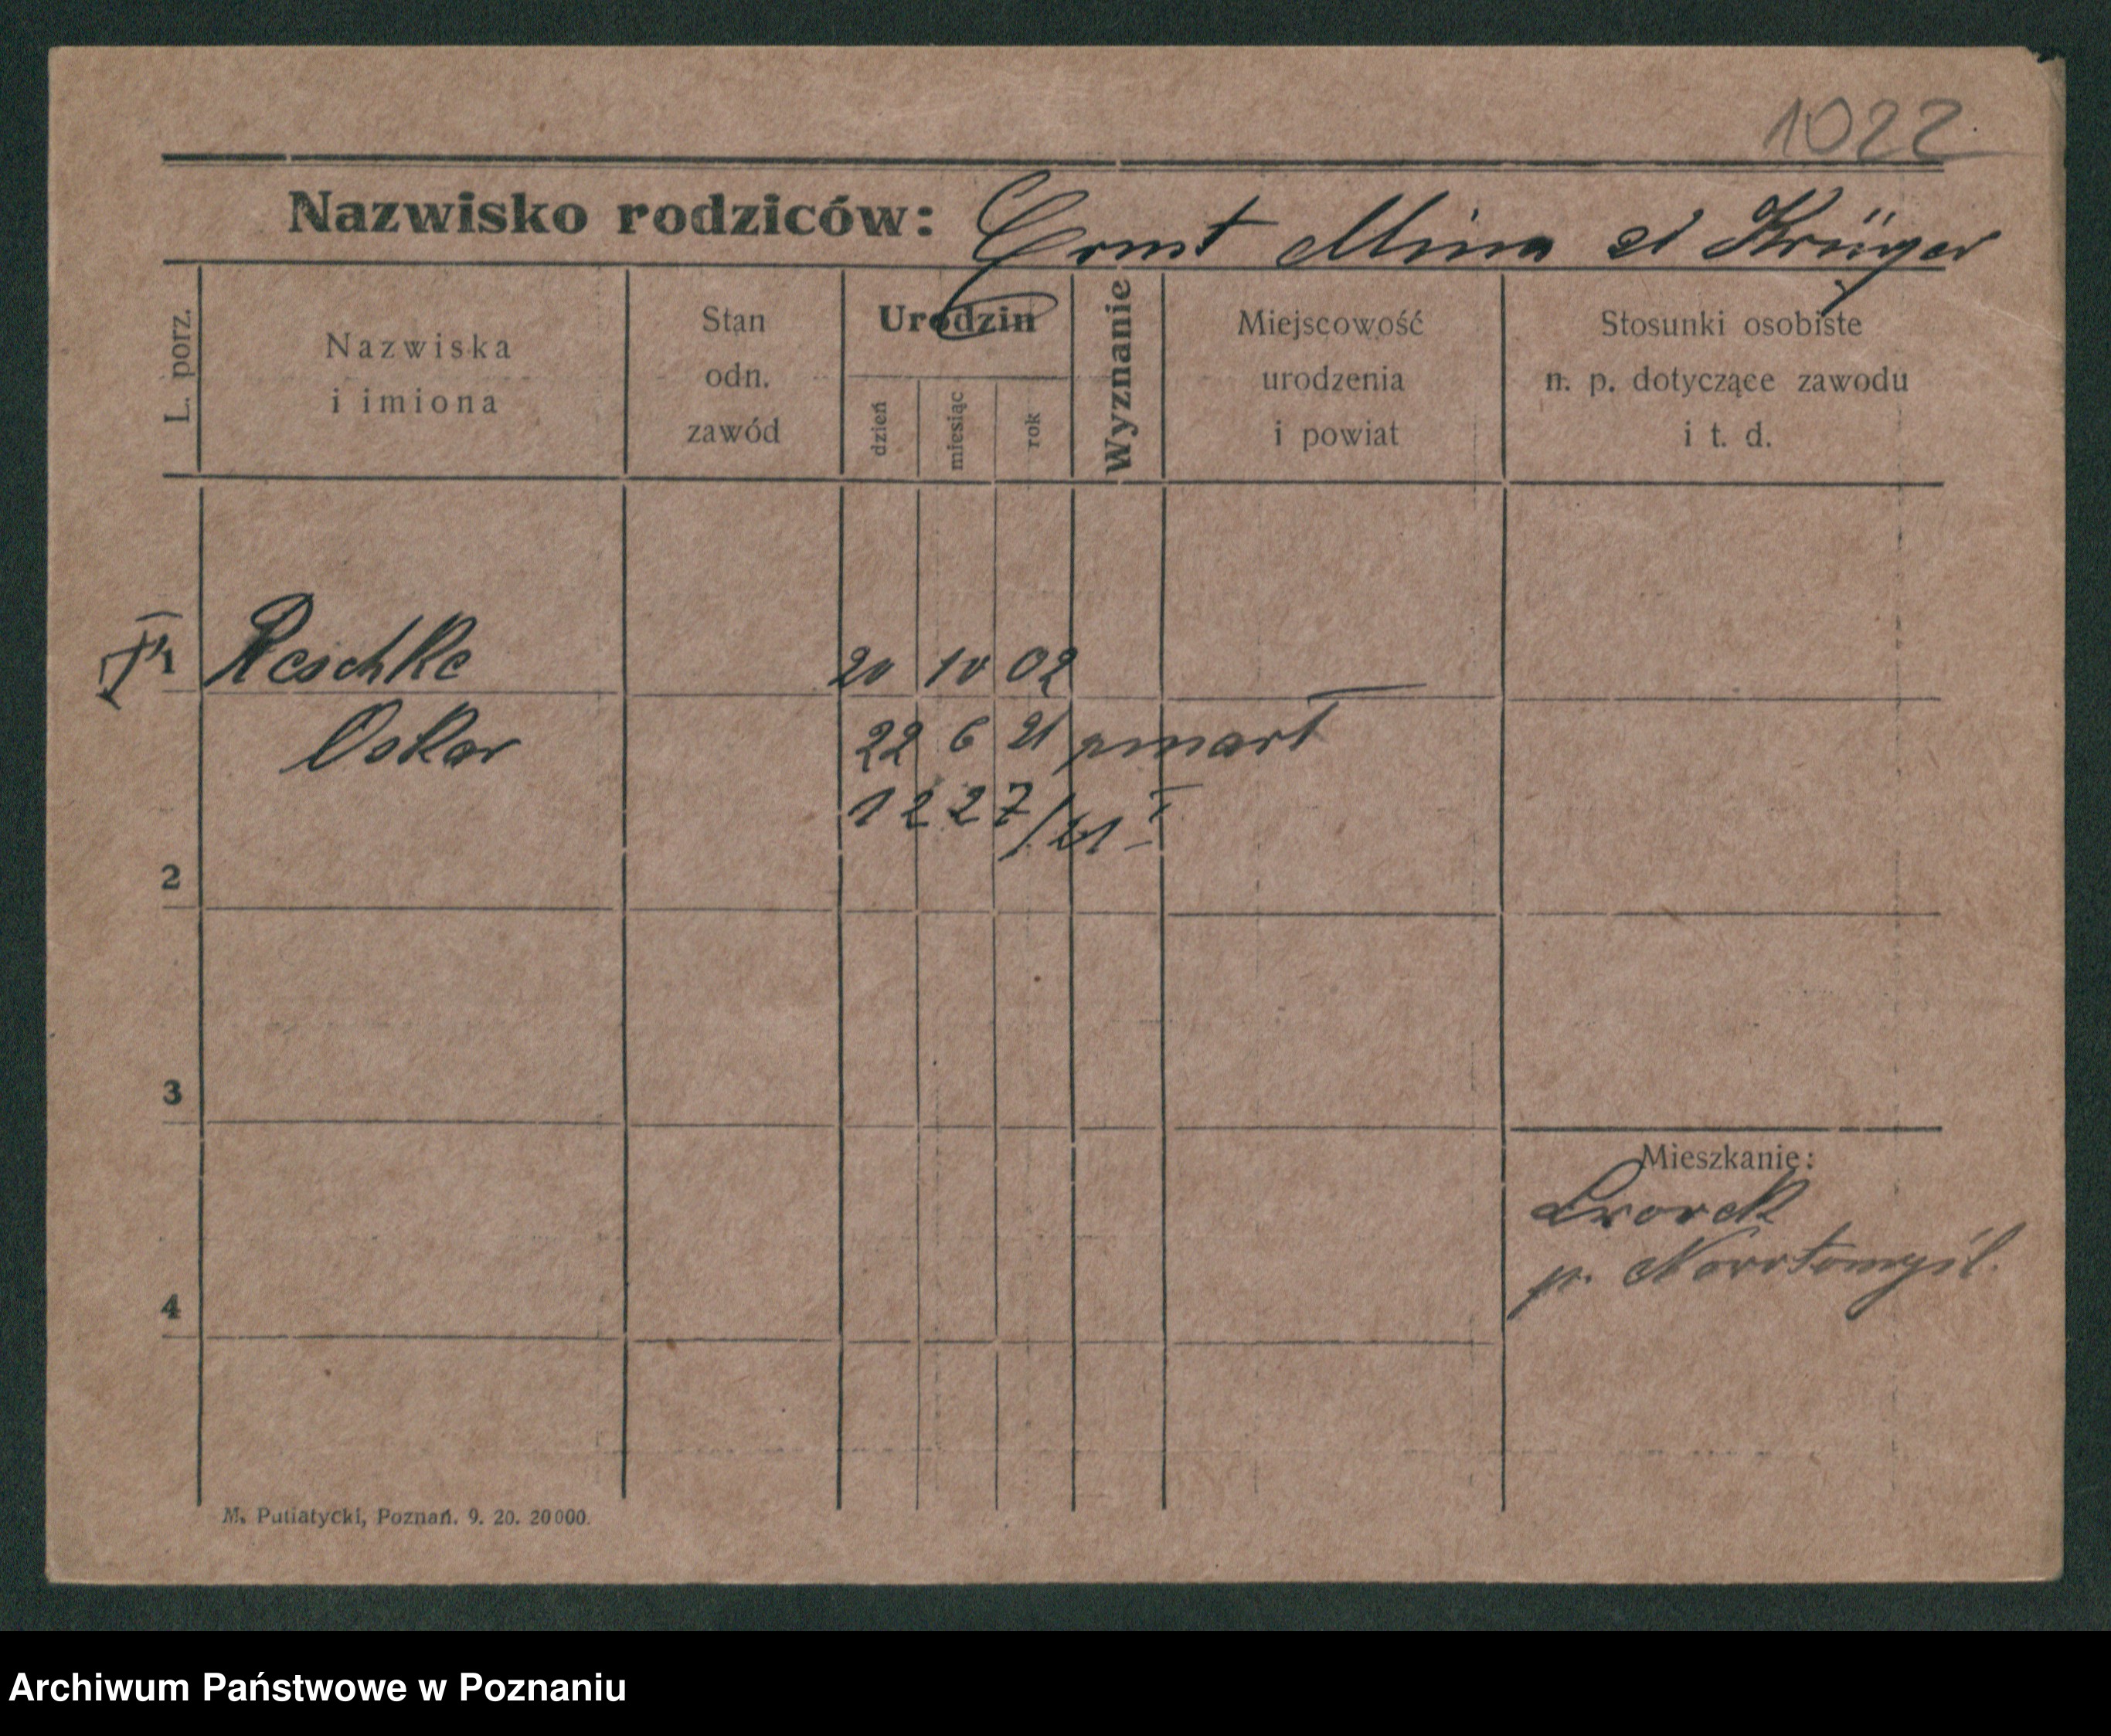 1022
Nazwisko rodziców: Ernst Mina d Krüger
L. porz.
Nazwiska
i imiona
Stan
odn.
zawód
Urodzin
dzień
miesiąc
rok
Wyznanie
Miejscowość
urodzenia
i powiat
Stosunki osobiste
n. p. dotyczące zawodu
i t. d.
1 Reschke 20 10 02
Oskar 22 6 21 zmarł
1227/21 I
2
3
Mieszkanie:
p. Nowotomyśl.
4
M. Putiatycki, Poznań. 9. 20. 20000.
Archiwum Państwowe w Poznaniu